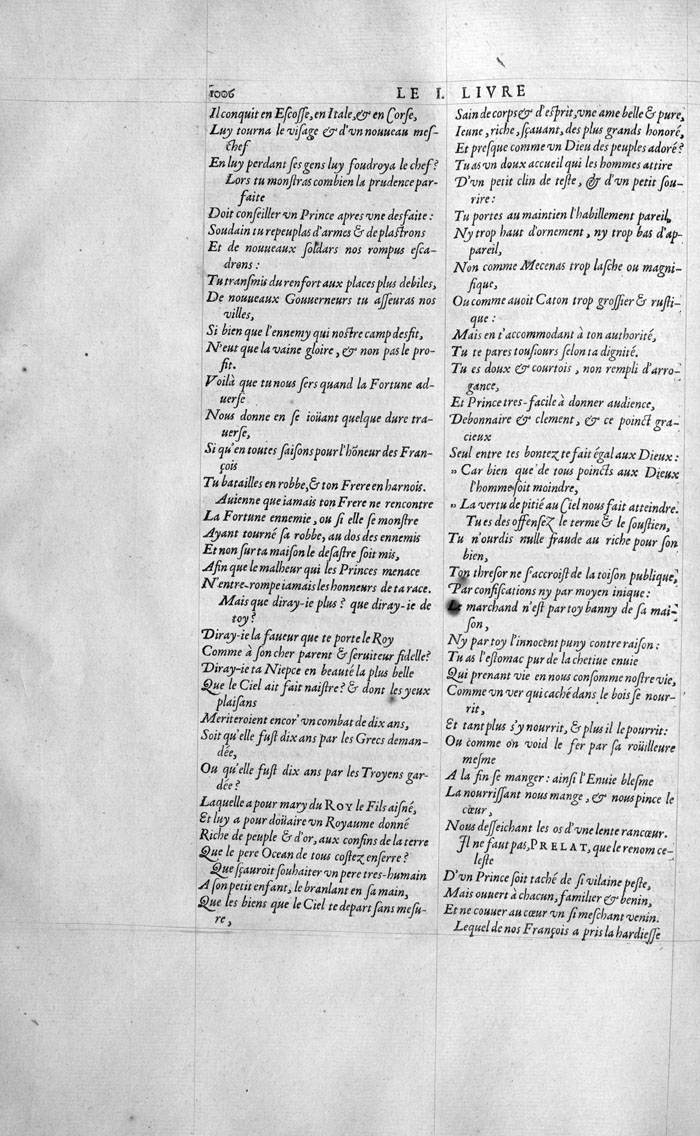 1006
LE I. LIVRE
Il conquit en Escosse, en Itale, & en Corse,
Luy tourna le visage & d'vn nouueau mes-
chef
En luy perdant ses gens luy foudroya le chef?
Lors tu monstras combien la prudence par-
faite
Doit conseiller vn Prince apres vne desfaite:
Soudain tu repeuplas d'armes & de plastrons
Et de nouueaux soldars nos rompus esca-
drons:
Tu transmis du renfort aux places plus debiles,
De nouueaux Gouuerneurs tu asseuras nos
villes,
Si bien que l'ennemy qui nostre camp desfit,
N'eut que la vaine gloire, & non pas le pro-
fit.
Voilà que tu nous sers quand la Fortune ad-
uerse
Nous donne en se ioüant quelque dure tra-
uerse,
Si qu'en toutes saisons pour l'hõneur des Fran-
çois
Tu batailles en robbe, & ton Frere en harnois.
Auienne que iamais ton Frere ne rencontre
La Fortune ennemie, ou si elle se monstre
Ayant tourné sa robbe, au dos des ennemis
Et non sur ta maison le desastre soit mis,
Afin que le malheur qui les Princes menace
N'entre-rompe iamais les honneurs de ta race.
Mais que diray-ie plus? que diray-ie de
toy?
Diray-ie la faueur que te porte le Roy
Comme à son cher parent & seruiteur fidelle?
Diray-ie ta Niepce en beauté la plus belle
Que le Ciel ait fait naistre? & dont les yeux
plaisans
Meriteroient encor' vn combat de dix ans,
Soit qu'elle fust dix ans par les Grecs deman-
dée,
Ou qu'elle fust dix ans par les Troyens gar-
dée?
Laquelle a pour mary du ROY le Fils aisné,
Et luy a pour doüaire vn Royaume donné
Riche de peuple & d'or, aux confins de la terre
Que le pere Ocean de tous costez enserre?
Que sçauroit souhaiter vn pere tres-humain
A son petit enfant, le branlant en sa main,
Que les biens que le Ciel te depart sans mesu-
re,
Sain de corps & d'esprit, vne ame belle & pure,
Ieune, riche, sçauant, des plus grands honoré,
Et presque comme vn Dieu des peuples adoré?
Tu as vn doux accueil qui les hommes attire
D'vn petit clin de teste, & d'vn petit sou-
rire:
Tu portes au maintien l'habillement pareil,
Ny trop haut d'ornement, ny trop bas d'ap-
pareil,
Non comme Mecenas trop lasche ou magni-
fique,
Ou comme auoit Caton trop grossier & rusti-
que:
Mais en t'accommodant à ton authorité,
Tu te pares tousiours selon ta dignité.
Tu es doux & courtois, non rempli d'arro-
gance,
Et Prince tres-facile à donner audience,
Debonnaire & clement, & ce poinct gra-
cieux
Seul entre tes bontez te fait égal aux Dieux:
" Car bien que de tous poincts aux Dieux
l'homme soit moindre,
" La vertu de pitié au Ciel nous fait atteindre.
Tu es des offensez le terme & le soustien,
Tu n'ourdis nulle fraude au riche pour son
bien,
Ton thresor ne s'accroist de la toison publique,
Par confiscations ny par moyen inique:
Le marchand n'est par toy banny de sa mai-
son,
Ny par toy l'innocent puny contre raison:
Tu as l'estomac pur de la chetiue enuie
Qui prenant vie en nous consomme nostre vie,
Comme vn ver qui caché dans le bois se nour-
rit,
Et tant plus s'y nourrit, & plus il le pourrit:
Ou comme on void le fer par sa roüilleure
mesme
A la fin se manger: ainsi l'Enuie blesme
La nourrissant nous mange, & nous pince le
cœur,
Nous desseichant les os d'vne lente rancœur.
Il ne faut pas, PRELAT, que le renom ce-
leste
D'vn Prince soit taché de si vilaine peste,
Mais ouuert à chacun, familier & benin,
Et ne couuer au cœur vn si meschant venin.
Lequel de nos François a pris la hardiesse